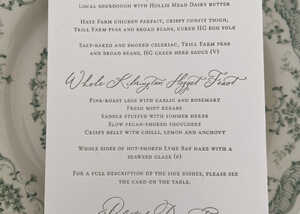 Local sourdough with Hollis Mead Dairy butter
Hate Farm chicken parfait, crispy confit thigh,
Trill Farm peas and broad beans, cured HG egg yolk
Salt-baked and smoked celeriac, Trill Farm peas
and broad beans, HG green herb sauce (V)
Whole Hogget Feast
Pink-roast legs with garlic and rosemary
Fresh mint kebabs
Saddle stuffed with summer herbs
Slow pecan-smoked shoulders
Crispy belly with chilli, lemon and anchovy
Whole sides of hot-smoked Lyme Bay hake with a
seaweed glaze
For a full description of the side dishes, please see
the card on the table.